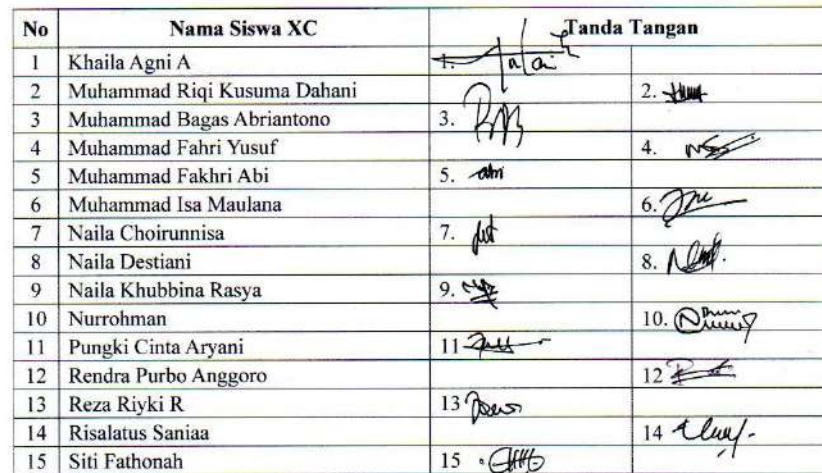 No Nama Siswa XC Tanda Tangan
1 Khaila Agni A 1.
2 Muhammad Riqi Kusuma Dahani 2.
3 Muhammad Bagas Abriantono 3.
4 Muhammad Fahri Yusuf 4.
5 Muhammad Fakhri Abi 5.
6 Muhammad Isa Maulana 6.
7 Naila Choirunnisa 7.
8 Naila Destiani 8.
9 Naila Khubbina Rasya 9.
10 Nurrohman 10.
11 Pungki Cinta Aryani 11
12 Rendra Purbo Anggoro 12
13 Reza Riyki R 13
14 Risalatus Saniaa 14
15 Siti Fathonah 15